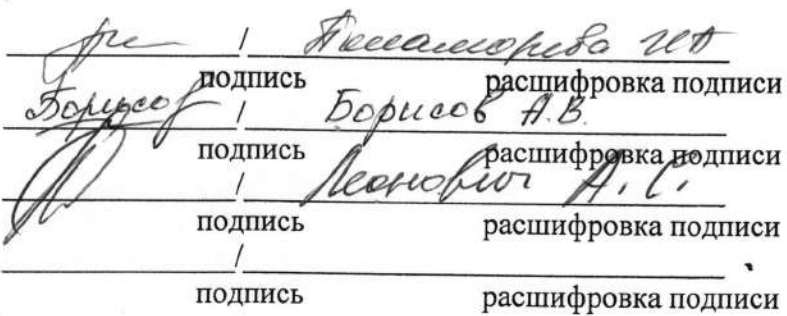 / Пономарева
подпись расшифровка подписи
Борисов / Борисов А.В.
подпись расшифровка подписи
/ Леонович А.С.
подпись расшифровка подписи
/
подпись расшифровка подписи